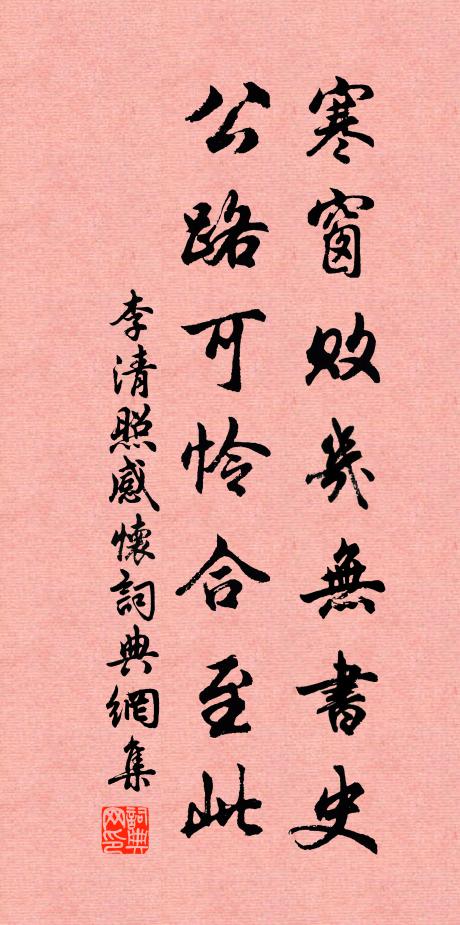 寒窗敗幾無書史
公路可憐合至此
李清照感懷詞典網集
詞典網印